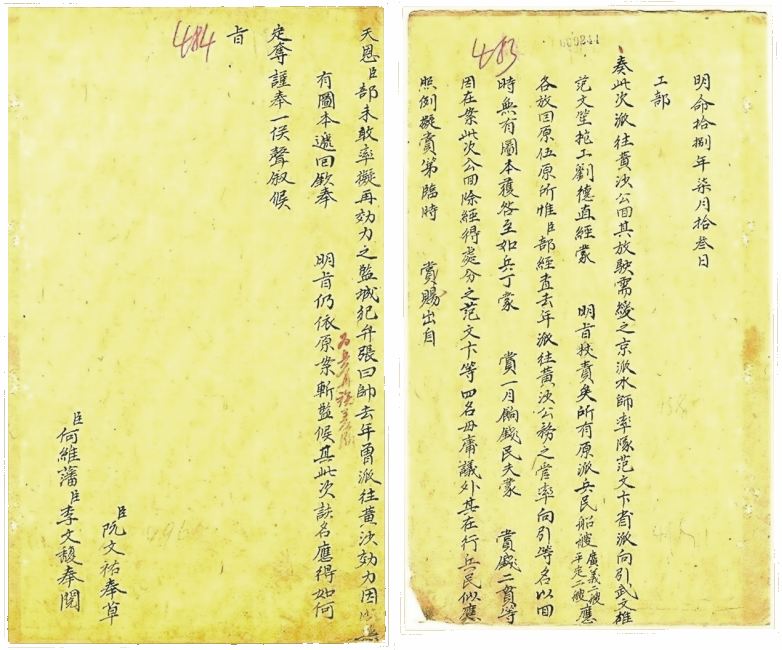 000244
483
明命拾捌年柒月拾叁日
工部
奏此次派往黃沙公回其放駛需緩之京派水師率隊范文卞省派向引武文雄
范文生挖工劉德直經蒙 明旨杖責矣所有原派兵民船艘廣義二艘平定二艘應
各放回原伍原所惟臣部經查去年派往黃沙公務之管率向引等名以回
時無有圖本獲咎至如兵丁蒙 賞一月餉錢民夫蒙 賞錢二貫等
因在案此次公回除經得處分之范文卞等四名毋庸議外其在行兵民似應
照例擬賞第臨時 賞賜出自
484
天恩臣部未敢率擬再効力之監城犯弁張曰帥去年曾派往黃沙効力因以無
有圖本遞回欽奉 明旨仍依原案斬監候其此次該名應得如何
定奪謹奉一俟聲叙候
旨
臣阮文祐奉草
臣何維藩臣李文馥奉閱